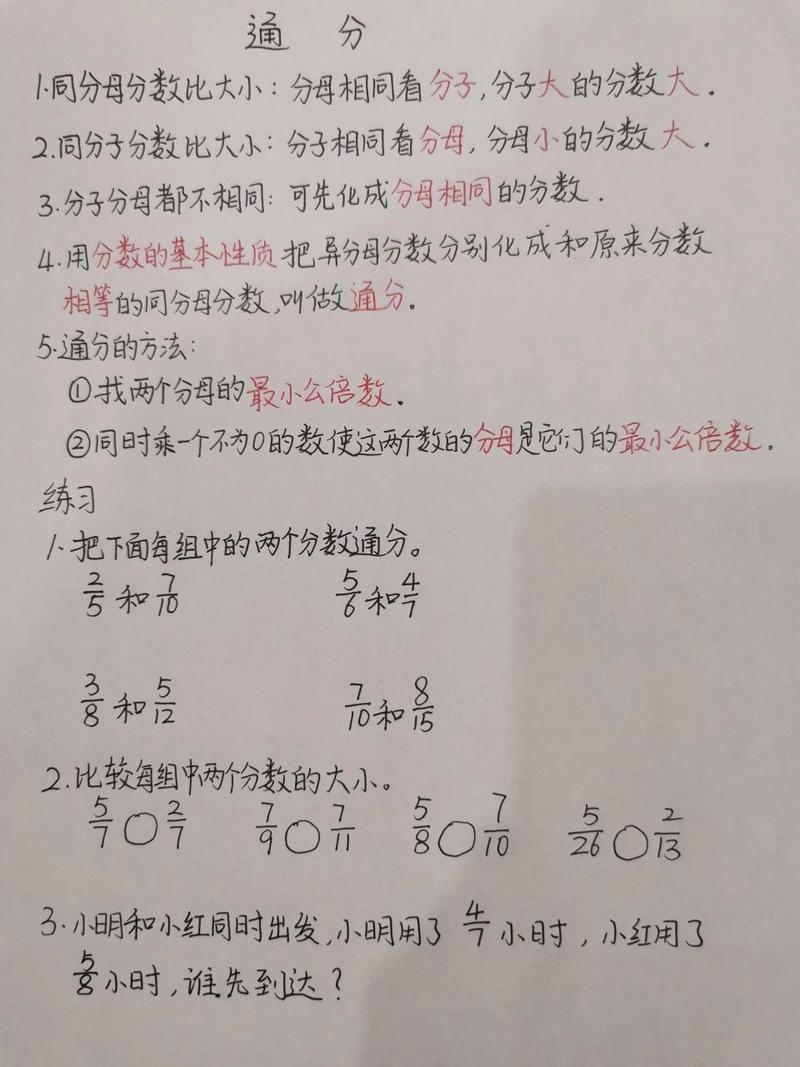 通 分
1.同分母分数比大小：分母相同看分子,分子大的分数大.
2.同分子分数比大小：分子相同看分母,分母小的分数大.
3.分子分母都不相同：可先化成分母相同的分数.
4.用分数的基本性质把异分母分数分别化成和原来分数
相等的同分母分数,叫做通分.
5.通分的方法：
①找两个分母的最小公倍数.
②同时乘一个不为0的数使这两个数的分母是它们的最小公倍数.
练习
1.把下面每组中的两个分数通分。
2/5和7/10 5/6和4/7
3/8和5/12 7/10和8/15
2.比较每组中两个分数的大小。
5/7○2/7 7/9○7/11 5/8○7/10 5/26○2/13
3.小明和小红同时出发,小明用了4/7小时,小红用了
5/8小时,谁先到达?